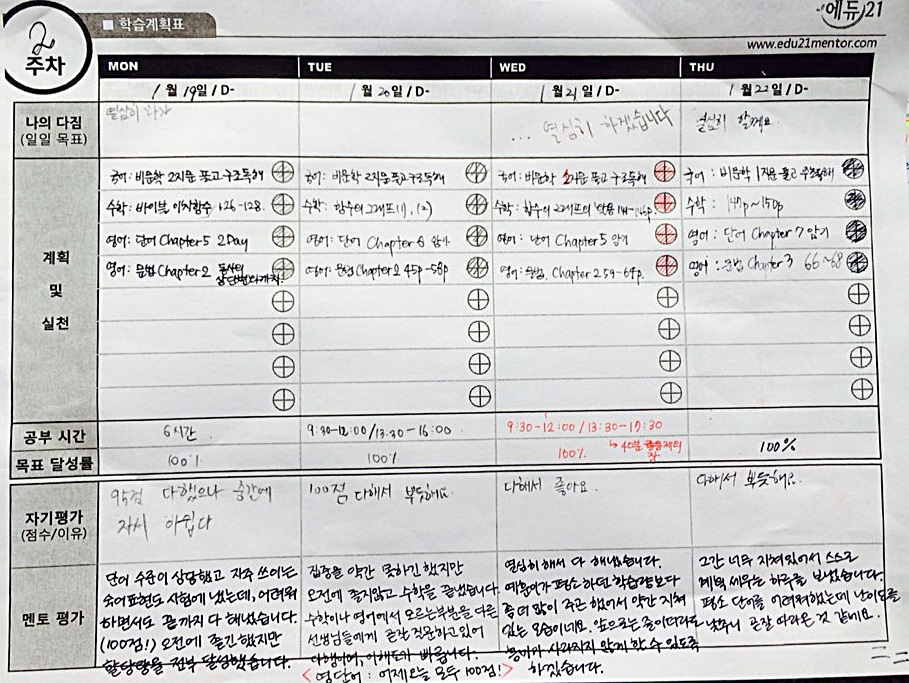 2 주차
■ 학습계획표
에듀21
www.edu21mentor.com
MON TUE WED THU
1월 19일 / D- 1월 20일 / D- 1월 21일 / D- 1월 22일 / D-
나의 다짐
(일일 목표)
열심히 하자
... 열심히 하겠습니다
열심히 할께요.
계획
및
실천
국어: 비문학 2지문 풀고 구조독해 국어: 비문학 2지문 풀고 구조독해 국어: 비문학 지문 풀고 구조독해 국어: 비문학 1지문 풀고 구조독해
수학: 바이블 이차함수 126-128. 수학: 함수의 그래프(1), (2) 수학: 함수의 그래프의 활용 수학: 147p~150p
영어: 단어 Chapter 5 2Day 영어: 단어 Chapter 6 암기 영어: 단어 Chapter 5 암기 영어: 단어 Chapter 7 암기
영어: 문법 Chapter 2 동사의 영어: 문법 Chapter 2 45p-58p 영어: 문법. Chapter 2 59-64p. 영어: 문법 Chapter 3 66~68
상단변다까지!
공부 시간
6시간 9:30-12:00/13:30-16:00 9:30-12:00/13:30-17:30
목표 달성률
100% 100% 100% 100%
↳ 40분 졸음
자기평가
(점수/이유)
95점 다했으나 중간에
자서 아쉽다
100점 다해서 뿌듯해요.
다해서 좋아요.
다해서 뿌듯해요.
멘토 평가
단어 수준이 상당했고 자주 쓰이는
숙어표현도 시험에 냈는데, 어려워
하면서도 끝까지 다 해냈습니다.
(100점!) 오전에 졸긴 했지만
할당량을 전부 달성했습니다.
집중을 약간 못하긴 했지만
오전에 졸지않고 수학을 끝냈습니다.
수학이나 영어에서 모르는부분을 다른
선생님들에게 곧잘 질문하고 있어
다행이며, 이해도가 빠릅니다.
<영단어: 어제오늘 모두 100점!>
열심히 해서 다 해냈습니다.
예문이가 평소 하던 학습량보다
좀 더 많이 주곤 했어서 약간 지쳐
있는 모습이네요. 앞으로는 줄이더라도
용이가 사라지지 않게 할 수 있도록
하겠습니다.
그간 너무 지쳐있어서 스스로
계획 세우는 하루를 보냈습니다.
평소 단어를 어려워했는데 난이도를
낮추니 곧잘 따라온 것 같네요.